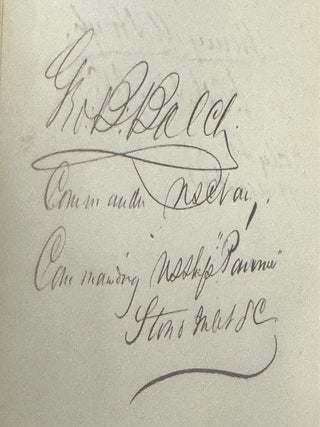 Geo. B. Balch.
Commander U S Navy,
Commanding U S Ship "Pawnee"
Stono Inlet S C